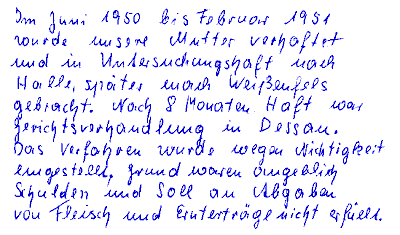 Im Juni 1950 bis Februar 1951
wurde unsere Mutter verhaftet
und in Untersuchungshaft nach
Halle, später nach Weißenfels
gebracht. Nach 8 Monaten Haft war
Gerichtsverhandlung in Dessau.
Das Verfahren wurde wegen Nichtigkeit
eingestellt, Grund waren angeblich
Schulden und Soll an Abgaben
von Fleisch und Ernterträge nicht erfüllt.